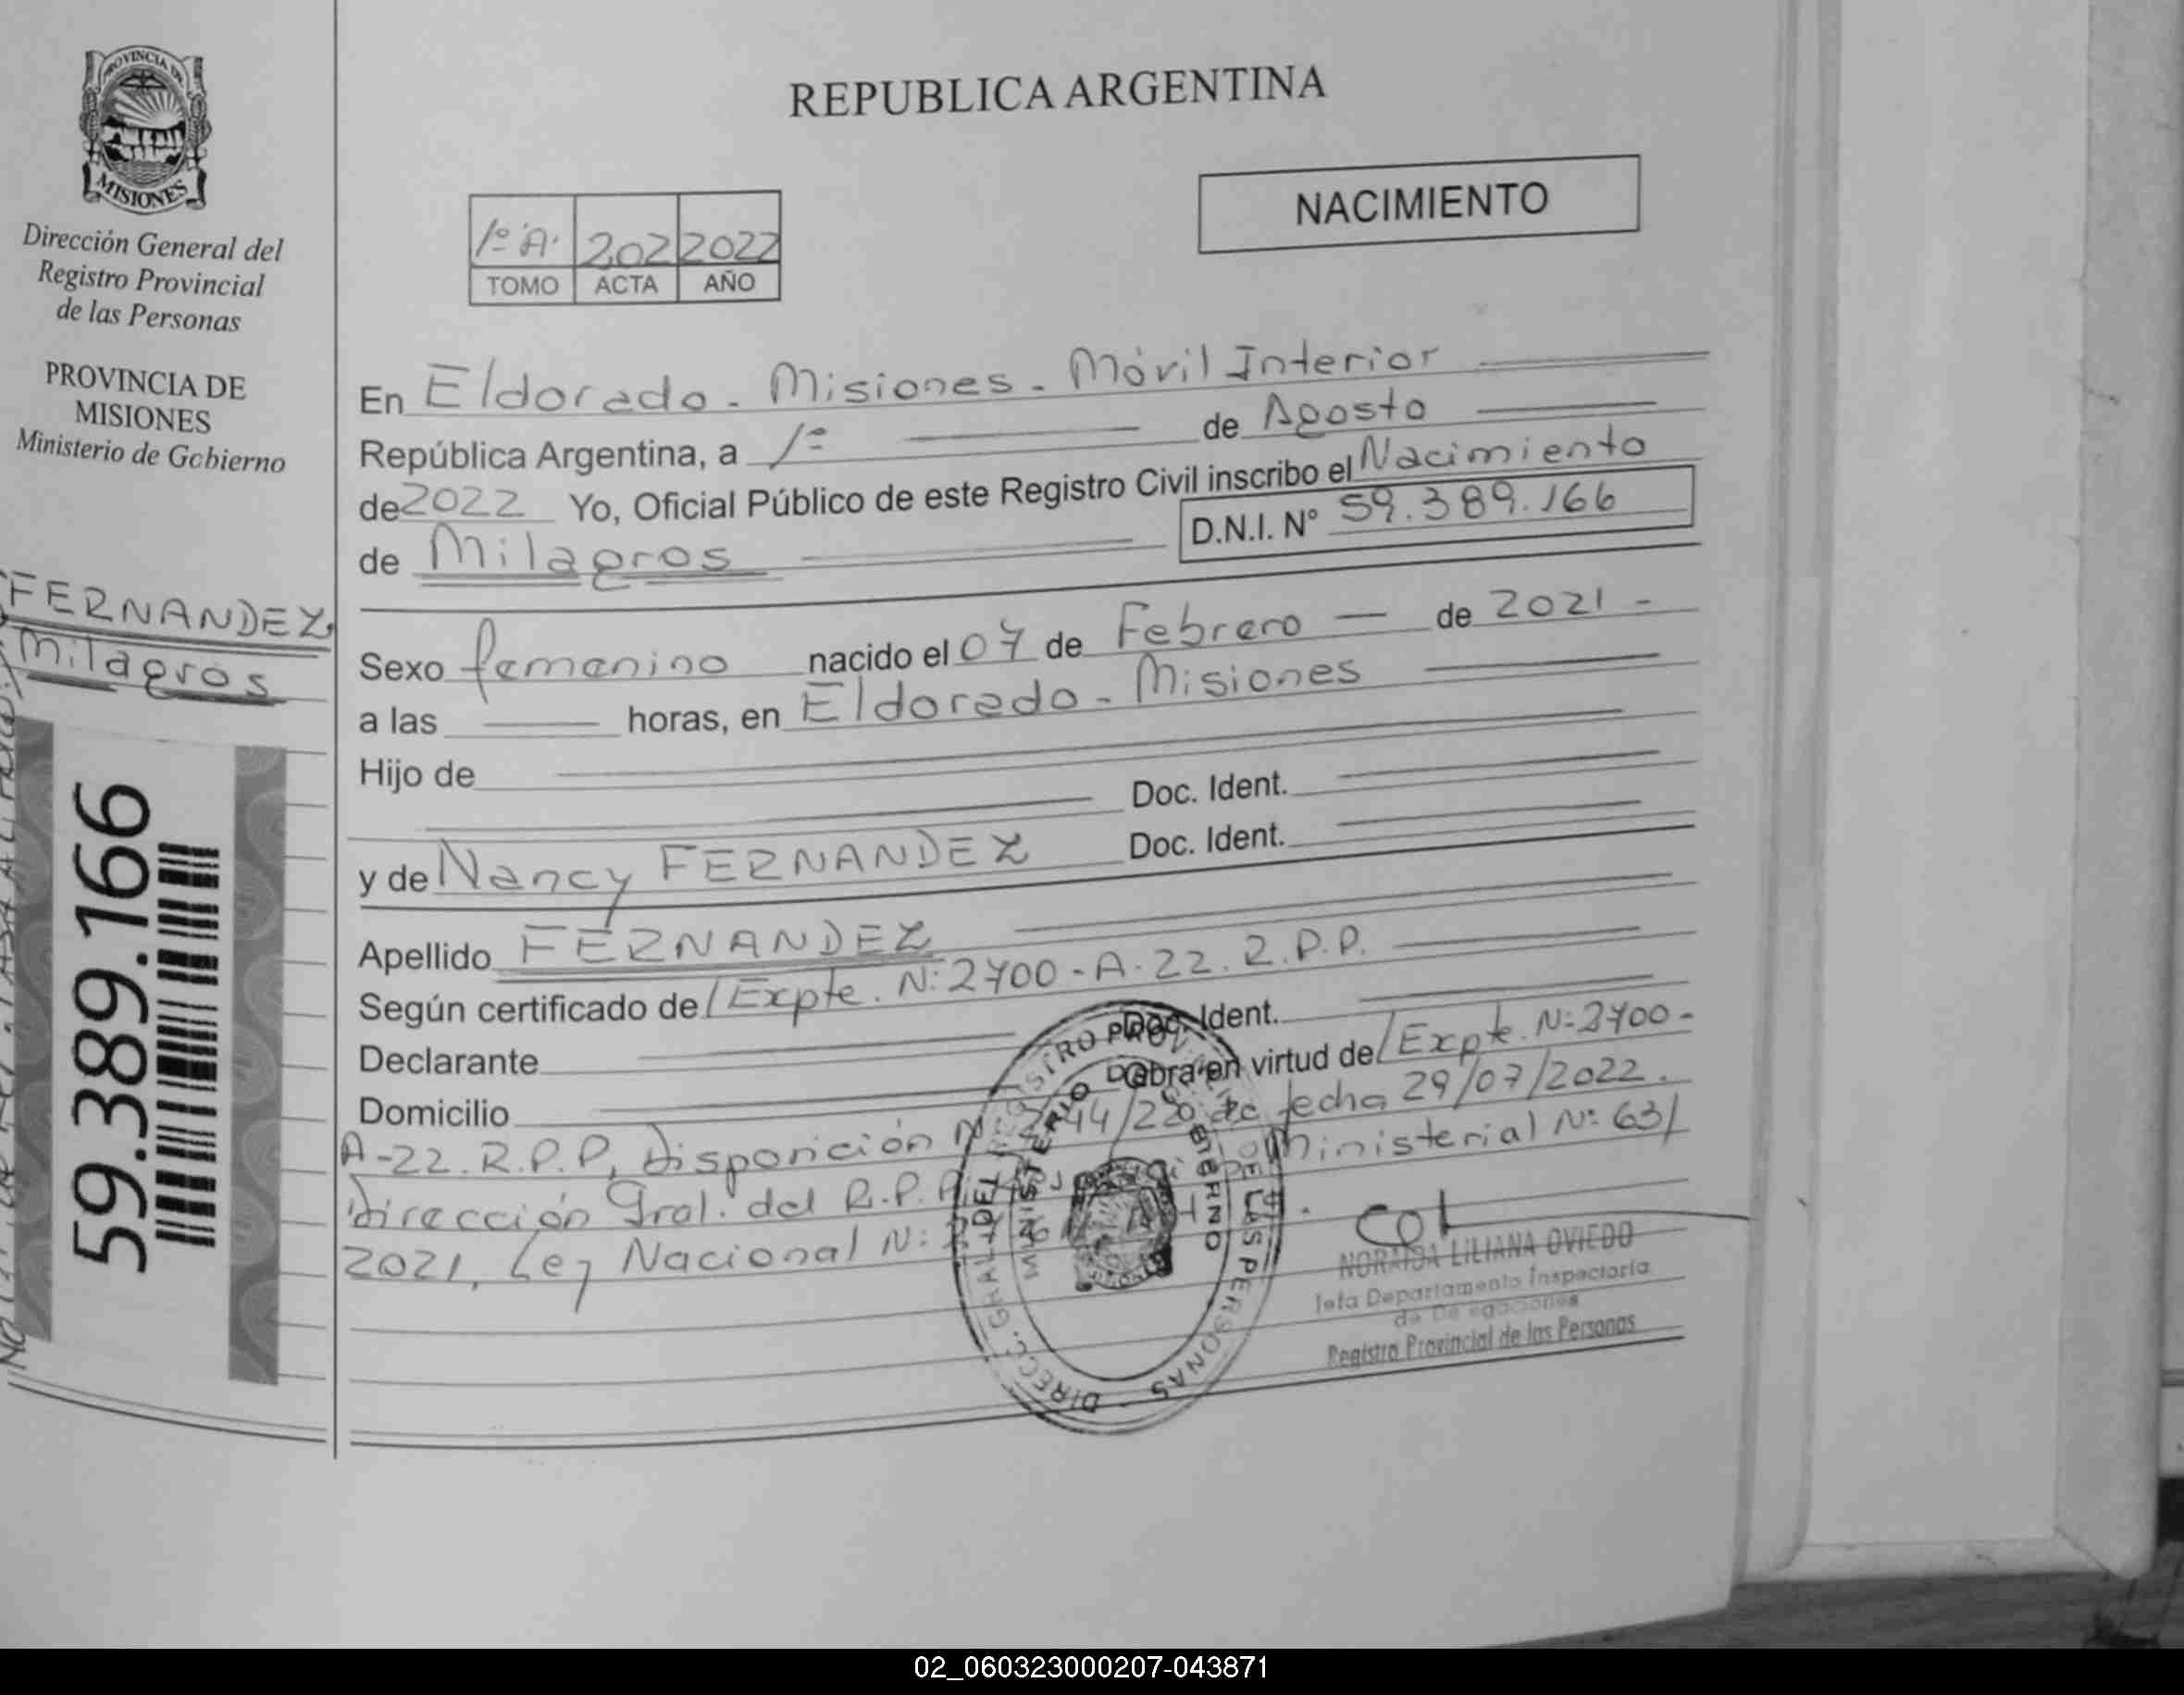 PROVINCIA DE
MISIONES
Dirección General del
Registro Provincial
de las Personas
PROVINCIA DE
MISIONES
Ministerio de Gobierno
FERNANDEZ
Milagros
59.389.166
REPUBLICA ARGENTINA
NACIMIENTO
1º "A" 202 2022
TOMO ACTA AÑO
En Eldorado - Misiones - Móvil Interior
República Argentina, a 1º de Agosto
de 2022 Yo, Oficial Público de este Registro Civil inscribo el Nacimiento
de Milagros D.N.I. Nº 59.389.166
Sexo femenino nacido el 07 de Febrero de 2021 -
a las horas, en Eldorado - Misiones
Hijo de
Doc. Ident.
y de Nancy FERNANDEZ Doc. Ident.
Apellido FERNANDEZ
Según certificado de/ Expte. Nº 2700 - A - 22. R.P.P.
Declarante Doc. Ident.
Domicilio Obra en virtud de/ Expte. Nº 2700 -
A-22. R.P.P, Disposición 44/22 de fecha 29/07/2022.
Dirección Gral. del R.P.P. Ministerial Nº 63/
2021, Ley Nacional Nº
DIRECC. GRAL. DEL REGISTRO PROVINCIAL DE LAS PERSONAS
MINISTERIO DE GOBIERNO
NORAIDA LILIANA OVIEDO
Jefa Departamento Inspectoría
de Delegaciones
Registro Provincial de las Personas
02_060323000207-043871